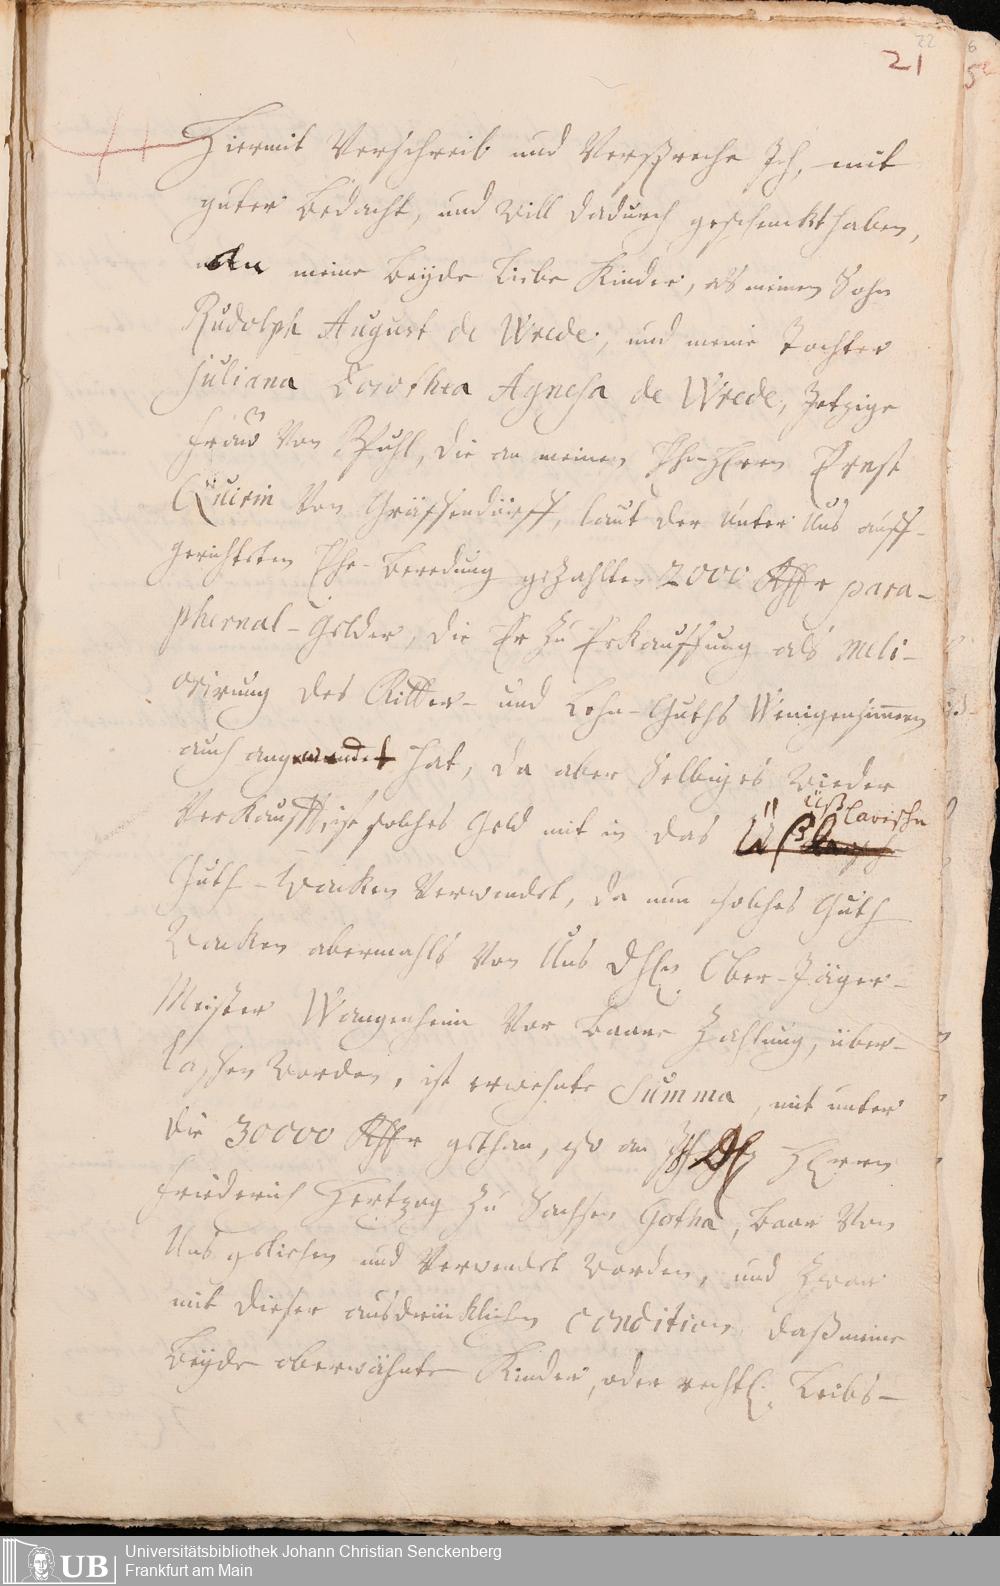 22
21
6
5
Hiermit Verschreib und Verspreche Ich, mit
guter Bedacht, und will dadurch geschenckt haben,
an meine beyde liebe Kinder, als meinen Sohn
Rudolph August de Wrede, und meine Tochter
Juliana Dorothea Agnesa de Wrede, Jetzige
Frau Von Pfuhl, die an meinen EheHerrn Ernst
Quirin Von Gräffendorff, laut der unter Uns auff-
gerichteten Ehe-Beredung gezahlten 2000 Rthlr para-
phernal-Gelder, die Er zu Erkauffung als meli-
orirung des Ritter- und Lehn-Guths Wenigensömmern
auch angewendet hat, da aber Selbiges wieder
Verkaufft, ist solches Geld mit in das
Üßlavische
Guth verwendet, da nun solches Guth
abermahls Von Uns Ober-Jäger-
Meister Wangenheim Vor baare Zahlung, über-
lassen worden, ist erwehnte Summa, mit unter
die 30000 Rthlr gethan, so an Herrn
Friederich Hertzog zu Sachsen Gotha, baar Von
Uns geliehen und Verwendet worden, und zwar
mit dieser ausdrücklichen condition, daß meine
beyde oberwähnte Kinder, oder rechtl. Leibs-
UB
Universitätsbibliothek Johann Christian Senckenberg
Frankfurt am Main